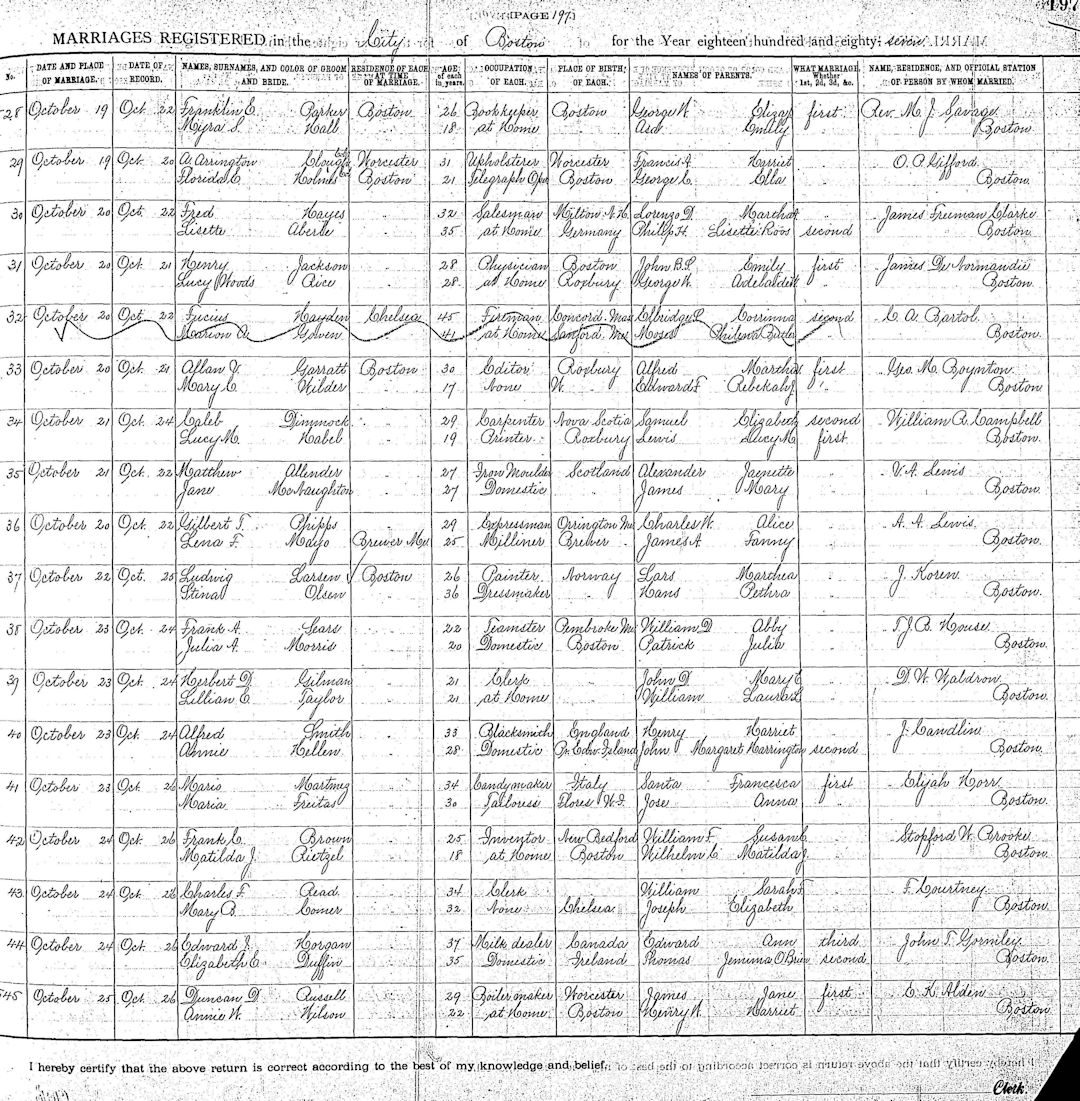 PAGE 197
197
MARRIAGES REGISTERED in the City of Boston for the Year eighteen hundred and eighty-seven
No. DATE AND PLACE OF MARRIAGE. DATE OF RECORD. NAMES, SURNAMES, AND COLOR OF GROOM AND BRIDE. RESIDENCE OF EACH AT TIME OF MARRIAGE. AGE of each in years. OCCUPATION OF EACH. PLACE OF BIRTH OF EACH. NAMES OF PARENTS. WHAT MARRIAGE, Whether 1st, 2d, 3d, &c. NAME, RESIDENCE, AND OFFICIAL STATION OF PERSON BY WHOM MARRIED.
28 October 19 Oct. 22 Franklin E. Parker Boston 26 Bookkeeper Boston George W. Eliza first Rev. M. J. Savage
Myra S. Hall " 18 at Home " Asa Emily " Boston
29 October 19 Oct. 20 A. Arrington Clough Worcester 31 Upholsterer Worcester Francis A. Harriet " O. P. Gifford
Florida E. Holmes Boston 21 Telegraph Oper Boston George C. Ella " Boston.
30 October 20 Oct. 22 Fred Hayes " 32 Salesman Milton N.H. Lorenzo D. Martha " James Freeman Clarke
Lisette Aberle " 35 at Home Germany Philip H. Lisette Roos second Boston.
31 October 20 Oct. 21 Henry Jackson " 28 Physician Boston John B.S. Emily first James De Normandie
Lucy Woods Rice " 28 at Home Roxbury George W. Adelaide " Boston.
32 October 20 Oct. 22 Lucius Hayden Chelsea 45 Fireman Concord. Mas Elbridge P. Corrinna second C. A. Bartol.
Marion A. Gowen " 41 at Home Sanford, Me Moses Philena Butler " Boston.
33 October 20 Oct. 21 Allan V. Garratt Boston 30 Editor Roxbury Alfred Martha first Geo. M. Boynton.
Mary C. Wilder " 17 None W. Edward F. Rebekah J. " Boston
34 October 21 Oct. 24 Caleb Dimmock " 29 Carpenter Nova Scotia Samuel Elizabeth second William R. Campbell
Lucy M. Habel " 19 Printer Roxbury Lewis Lucy M. first Boston.
35 October 21 Oct. 22 Matthew Allender " 27 Iron Moulder Scotland Alexander Janette " V. A. Lewis
Jane McNaughton " 27 Domestic " James Mary " Boston.
36 October 20 Oct. 22 Gilbert T. Phipps " 29 Expressman Orrington Me Charles W. Alice " A. A. Lewis.
Lena F. Mayo Brewer Me. 25 Milliner Brewer James A. Fanny " Boston.
37 October 22 Oct. 25 Ludwig Larsen Boston 26 Painter Norway Lars Marthea " J. Koren.
Stina Olsen " 36 Dressmaker " Hans Pethra " Boston.
38 October 23 Oct. 24 Frank A. Sears " 22 Teamster Pembroke Me. William D. Abby " T. J. B. House.
Julia A. Morris " 20 Domestic Boston Patrick Julia " Boston.
39 October 23 Oct. 24 Herbert D. Gilman " 21 Clerk " John D. Mary E. " D. W. Waldron.
Lillian E. Taylor " 21 at Home " William Laura L. " Boston.
40 October 23 Oct. 24 Alfred Smith " 33 Blacksmith England Henry Harriet " J. Candlin
Annie Hellen " 28 Domestic Pr. Edw. Island John Margaret Harrington second Boston.
41 October 23 Oct. 26 Mario Martinez " 34 Candymaker Italy Santa Francesca first Elijah Horr.
Maria Freitas " 30 Tailoress Flores W.I. Jose Anna " Boston.
42 October 24 Oct. 26 Frank C. Brown " 25 Inventor New Bedford William F. Susan C. " Stopford W. Brooke
Matilda J. Rietzel " 18 at Home Boston Wilhelm C. Matilda J. " Boston.
43 October 24 Oct. 26 Charles F. Read " 34 Clerk " William Sarah F. " F. Courtney.
Mary B. Comer " 32 None Chelsea. Joseph Elizabeth " Boston.
44 October 24 Oct. 26 Edward J. Horgan " 37 Milk dealer Canada Edward Ann third John T. Gormley.
Elizabeth E. Duffin " 35 Domestic Ireland Thomas Jemima O'Brien second Boston.
545 October 25 Oct. 26 Duncan D. Russell " 29 Boilermaker Worcester James Jane first E. K. Alden
Annie W. Wilson " 22 at Home Boston Henry W. Harriet " Boston
I hereby certify that the above return is correct according to the best of my knowledge and belief.
Clerk.